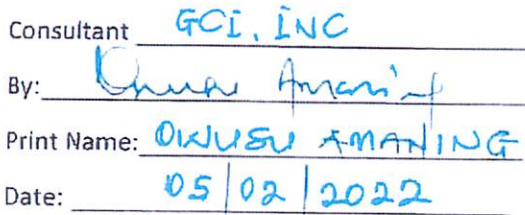 Consultant GCI, INC
By: Owusu Amaning
Print Name: OWUSU AMANING
Date: 05/02/2022